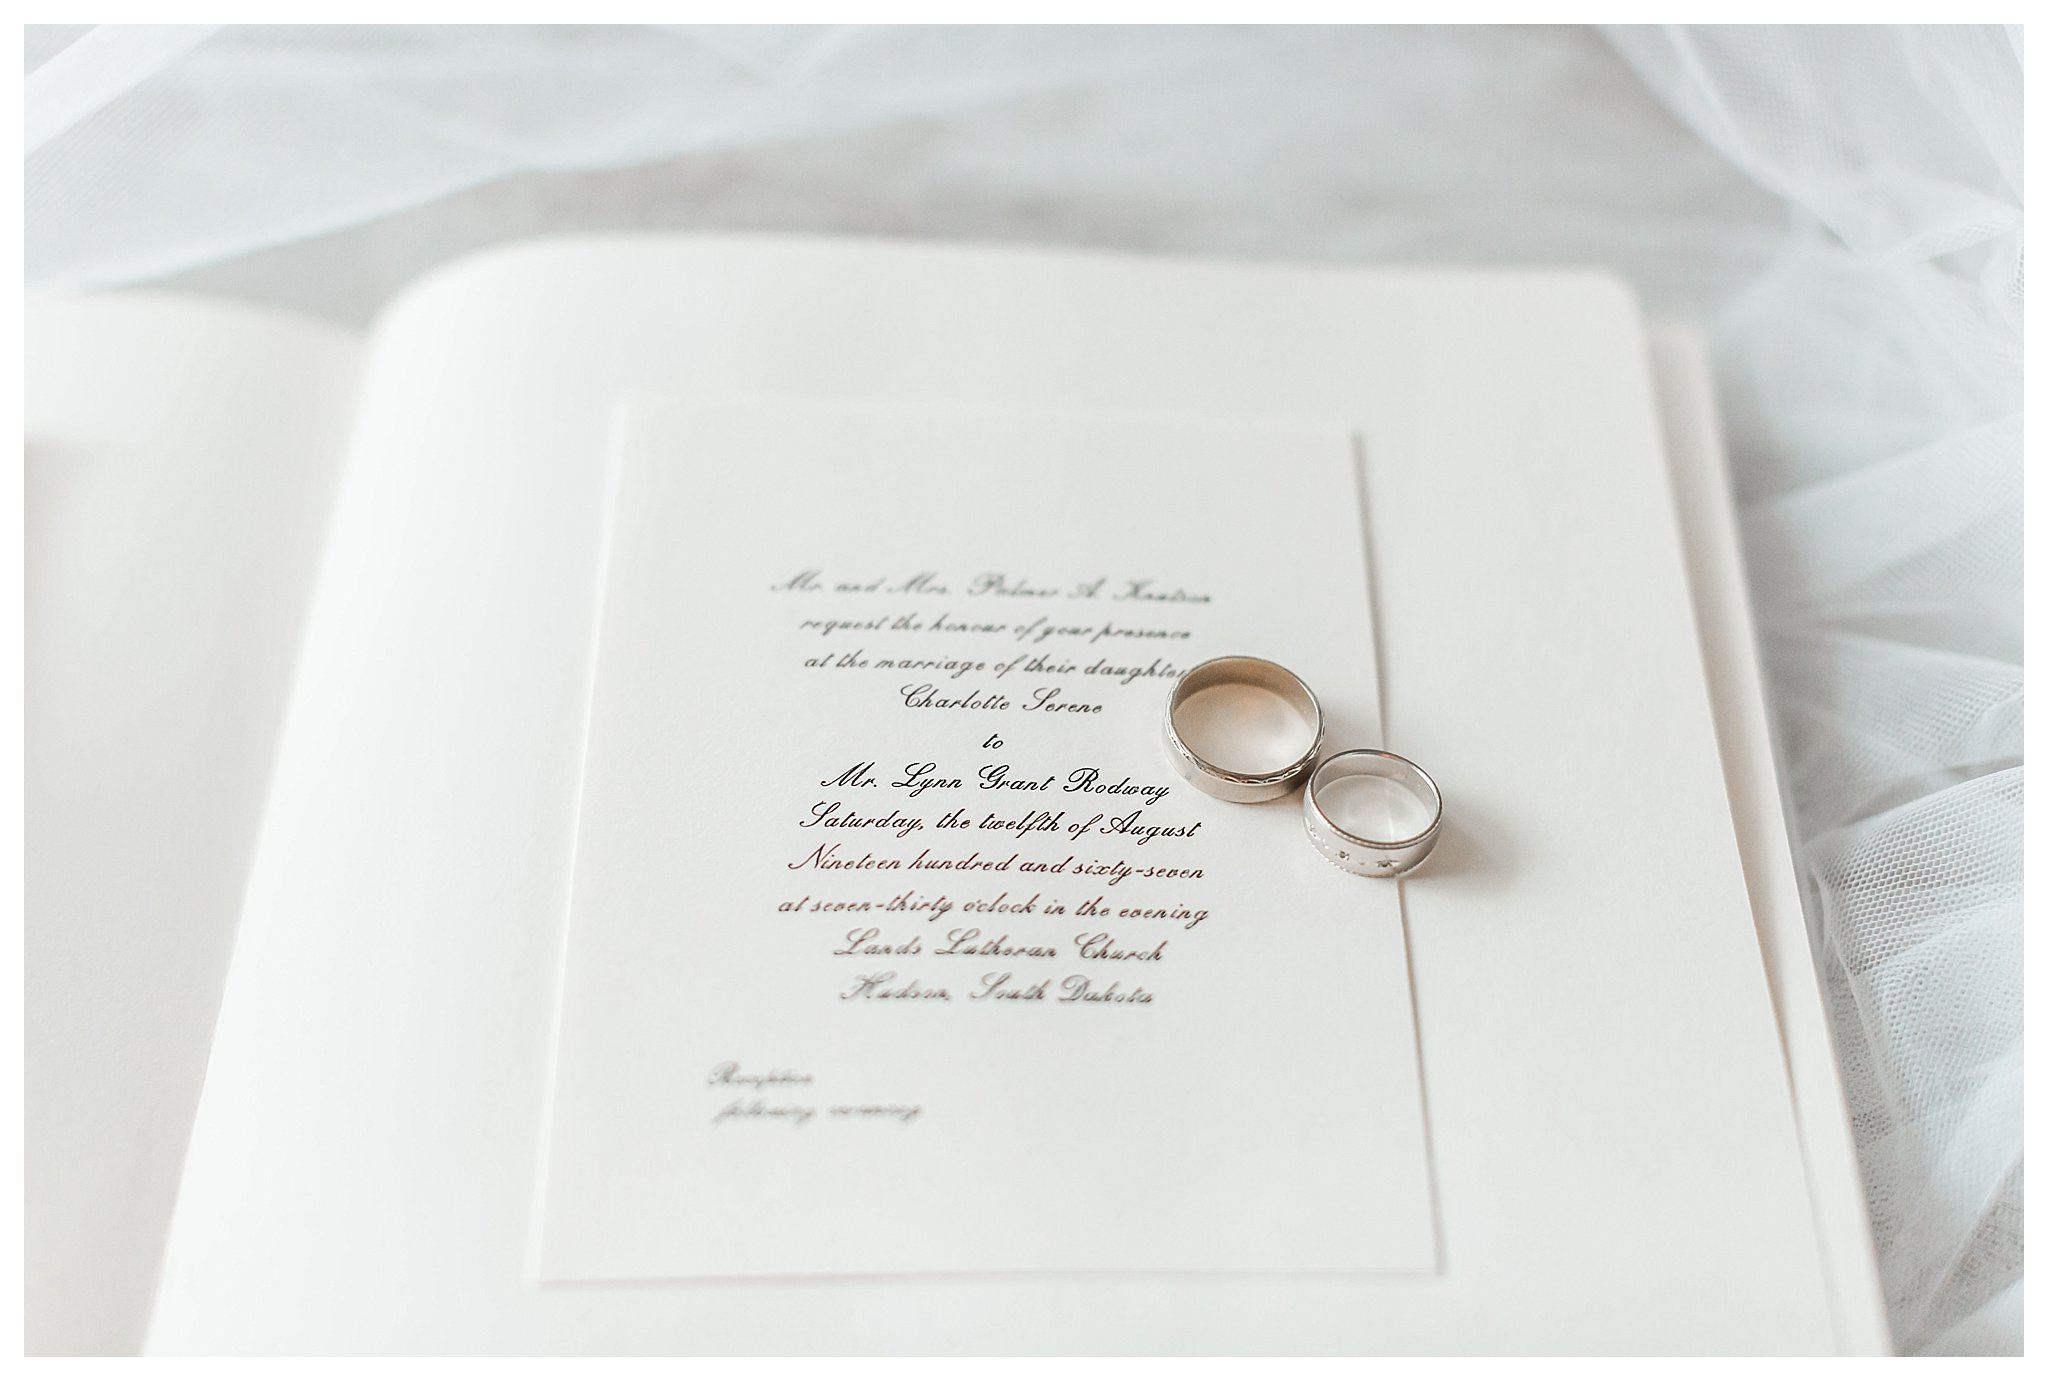 Mr. and Mrs. Palmer A. Knutson
request the honour of your presence
at the marriage of their daughter
Charlotte Serene
to
Mr. Lynn Grant Rodway
Saturday, the twelfth of August
Nineteen hundred and sixty-seven
at seven-thirty o'clock in the evening
Lands Lutheran Church
Hudson, South Dakota
Reception
following ceremony